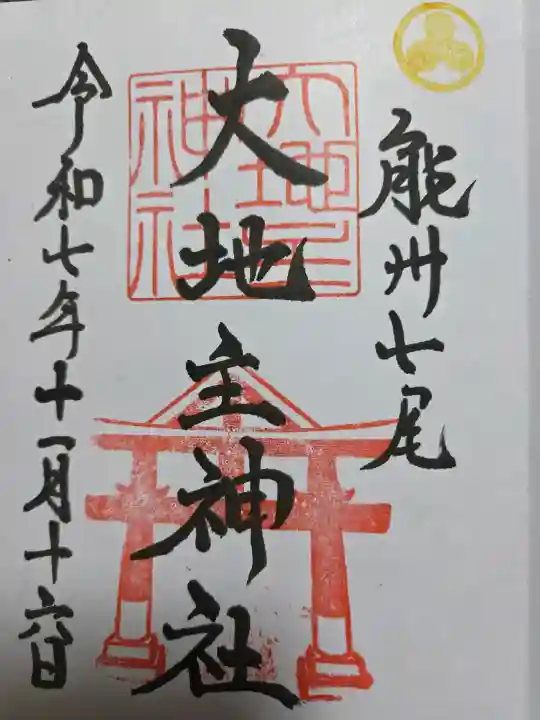 能州七尾
大地主神社
大地主
神社
令和七年十一月十六日